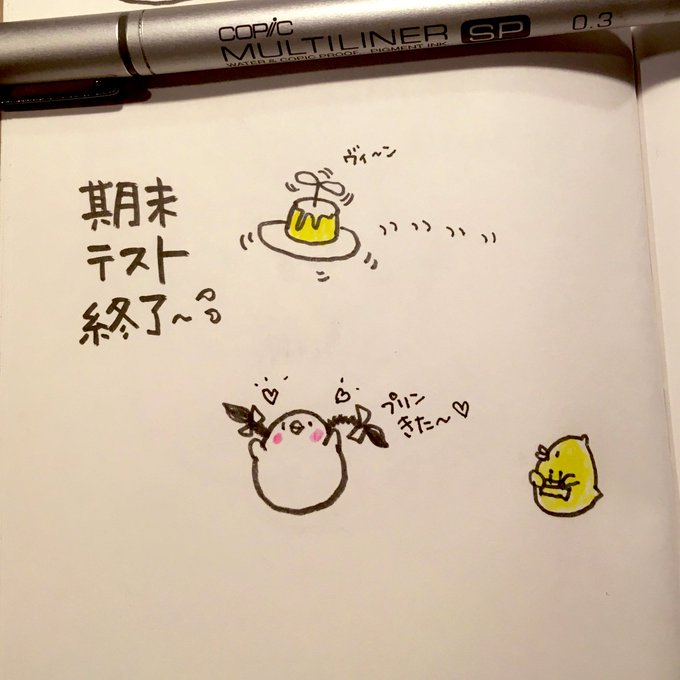 COPIC
MULTILINER SP 0.3
WATER & COPIC PROOF PIGMENT INK
ヴィ～ン
期末
テスト
終了～
プリン
きた～♡